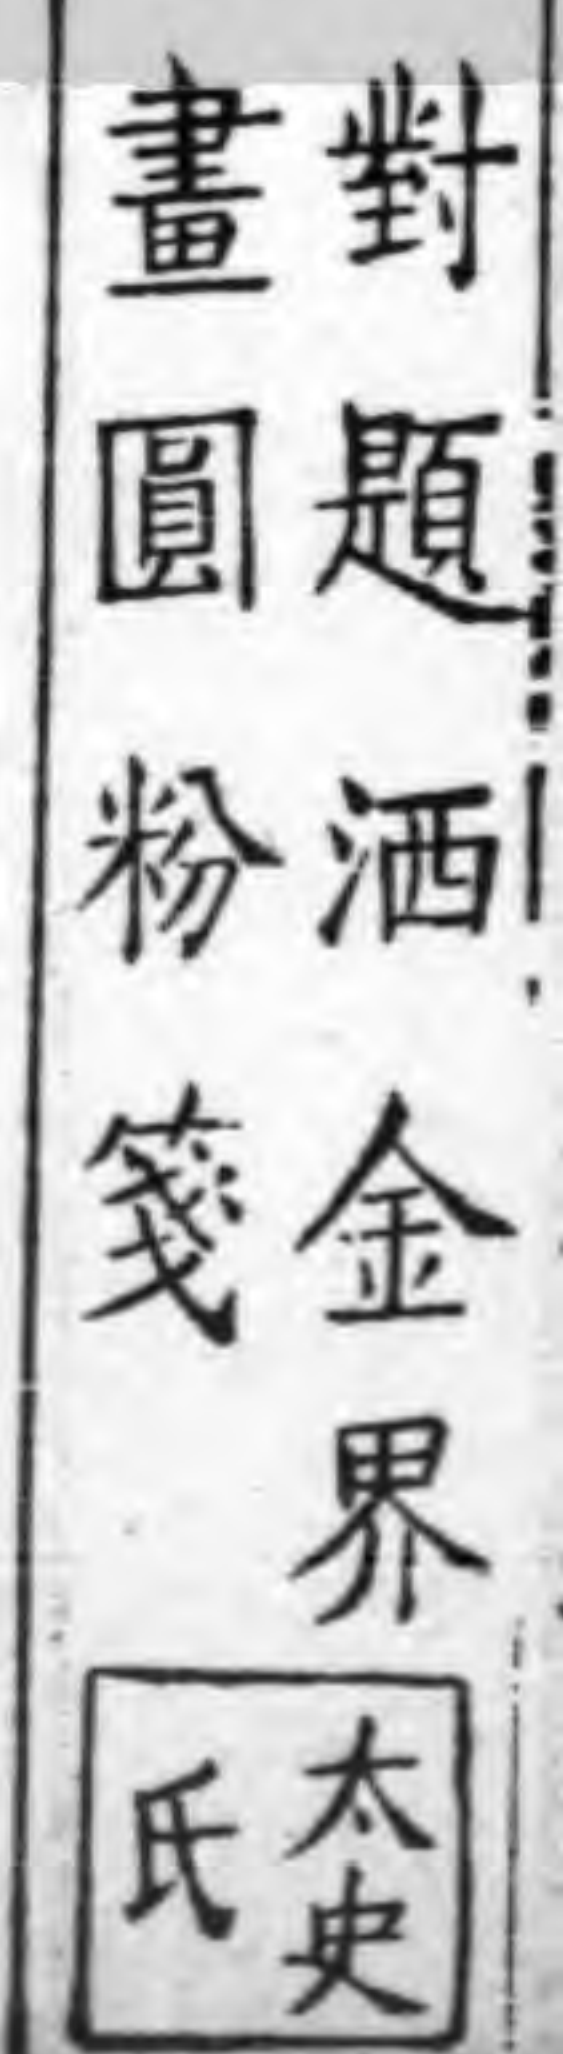 對題洒金界
畫圓粉箋
太史
氏